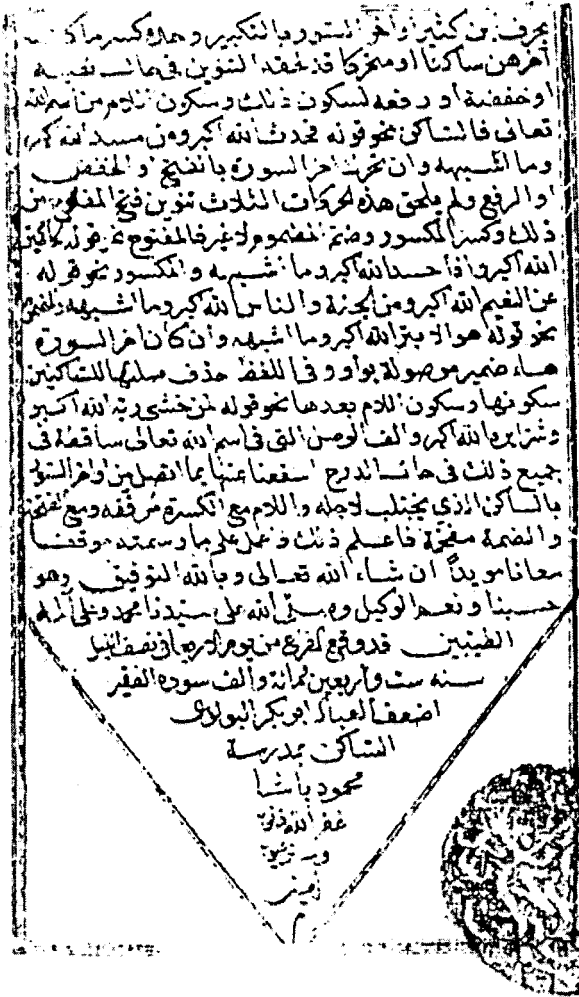 بحرف ابن كثير اواخر السور بالتكبير وحده كسر ما كان
اخرهن ساكنا او متحركا قد لحقه التنوين في حال نصبه
او خفضه او رفعه لسكون ذلك وسكون اللام من اسم الله
تعالى فالساكن نحو قوله فحدث الله اكبر ومن مسد الله اكبر
وما اشبهه وان تحرك اخر السورة بالفتح او الخفض
او الرفع ولم يلحق هذه الحركات الثلاث تنوين فتح المفتوح من
ذلك وكسر المكسور وضم المضموم لا غير فالمفتوح نحو قوله
الله اكبر واذا حسد الله اكبر وما اشبهه والمكسور نحو قوله
عن النعيم الله اكبر ومن الجنة والناس الله اكبر وما اشبهه والمضموم
نحو قوله هو الابتر الله اكبر وما اشبهه وان كان اخر السورة
هاء ضمير موصولة بواو في اللفظ حذف صلتها للساكنين
سكونها وسكون اللام بعدها نحو قوله لمن خشي ربه الله اكبر
وشرا يره الله اكبر والف الوصل التي في اسم الله تعالى ساقطة في
جميع ذلك في حال الدرج استغنا عنها بما اتصل من اواخر السور
بالساكن الذي يجتلب لاجله واللام مع الكسرة مرققه ومع الفتحة
والضمة مفخمة فاعلم ذلك واعمل على ما رسمته موفقا
معانا مويدا ان شاء الله تعالى وبالله التوفيق وهو
حسبنا ونعم الوكيل وصلى الله على سيدنا محمد وعلى آله
الطيبين قد وقع الفرغ من يوم الاربعا في نصف الليل
سنه ست واربعين ثمانة والف سوده الفقر
اضعف العباد ابو بكر البولادى
الساكن بمدرسة
محمود باشا
غفر الله ذنوبه
امين
م